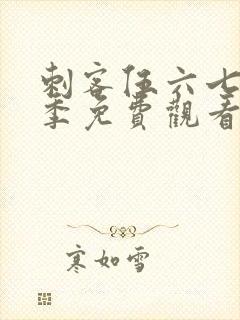 刺客伍六七
季免費觀看
寒如雪